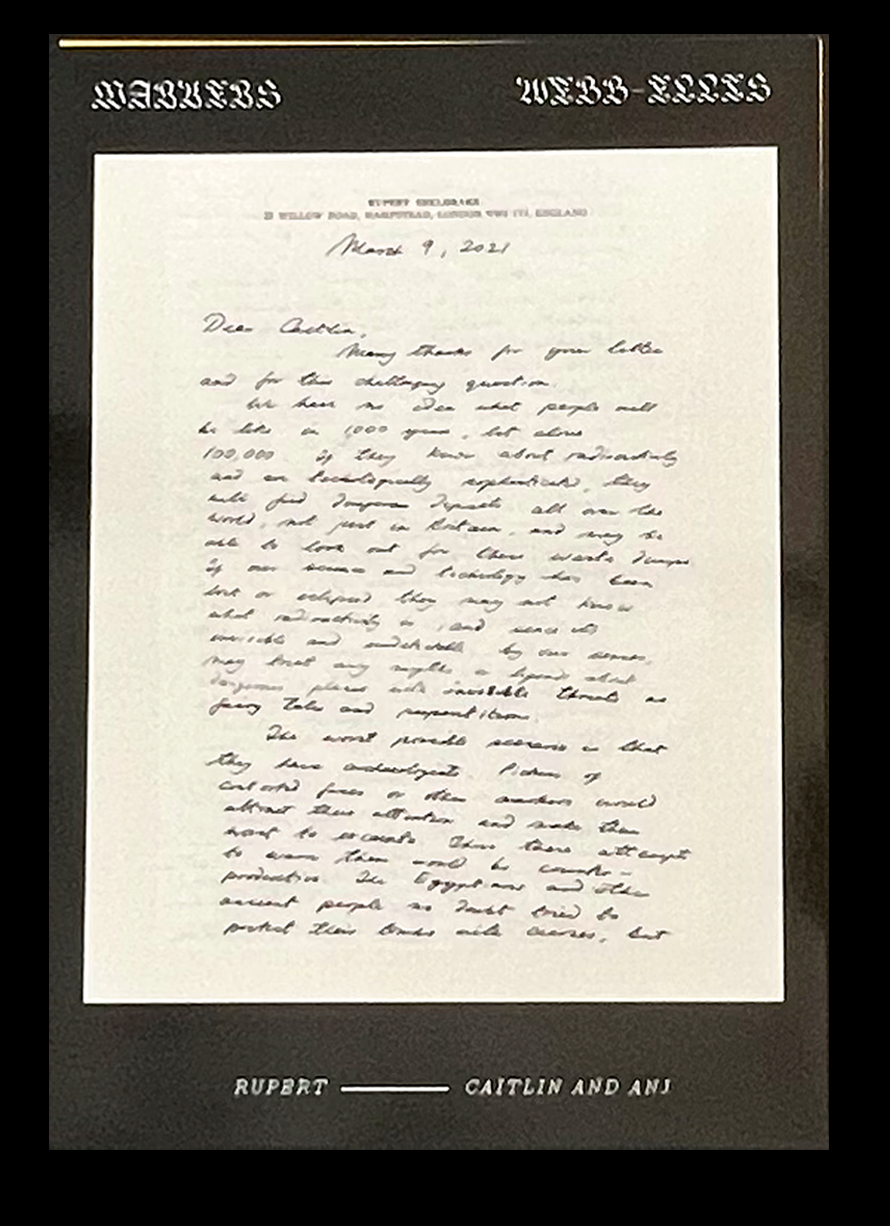 WEBB-ELLIS
RUPERT SHELDRAKE
WILLOW ROAD, HAMPSTEAD, LONDON ENGLAND
March 9, 2021
Dear Caitlin,
Many thanks for your letter
and for this challenging question.
We have no idea what people will
be like in 1000 years, let alone
100,000. If they know about radioactivity
and are technologically sophisticated, they
will find dangerous deposits all over the
world, not just in Britain, and may be
able to look out for these waste dumps
If our science and technology has been
lost or eclipsed they may not know
what radioactivity is, and since it's
invisible and undetectable by our senses,
may treat any myths or legends about
dangerous places with invisible threats as
fairy tales and superstitions.
The worst possible scenario is that
they have archaeologists. Pictures of
contorted faces or other markers would
attract their attention and make them
want to excavate. Thus these attempts
to warn them would be counter-
productive. The Egyptians and other
ancient people no doubt tried to
protect their tombs with curses, but
RUPERT — CAITLIN AND ANJ